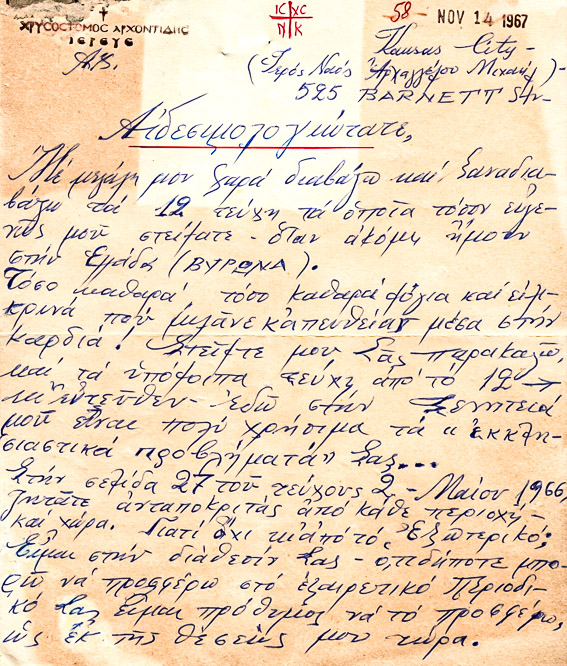 ΧΡΥΣΟΣΤΟΜΟΣ ΑΡΧΟΝΤΙΔΗΣ
ΙΕΡΕΥΣ
IC XC
N K
58 - NOV 14 1967
Kansas City -
(Ἱερός Ναός Ἀρχαγγέλου Μιχαήλ) -
525 BARNETT
Αἰδεσιμολογιώτατε,
Μέ μεγάλη μου χαρά διαβάζω καί ξαναδια-
βάζω τά 12 τεύχη τά ὁποῖα τόσον εὐγε-
νῶς μοῦ στείψατε - ὅταν ἀκόμη ἤμουν
στήν Ἑλλάδα (ΒΥΡΩΝΑ).
Τόσο καθαρά τόσο καθαρά λόγια καί εἰλι-
κρινά πού μιλᾶνε κατευθείαν μέσα στήν
καρδιά! Στείψτε μου Σας παρακαλῶ,
καί τά ὑπόλοιπα τεύχη ἀπό τό 12 →
καί ἐντεῦθεν - ἐδῶ στήν Ξενητειά
μοῦ εἶναι πολύ χρήσιμα τά «ἐκκλη-
σιαστικά προβλήματά» Σας...
Στήν σελίδα 27 τοῦ τεύχους 2 - Μαΐου 1966,
ζητᾶτε ἀνταποκριτάς ἀπό κάθε περιοχή -
καί χώρα. Γιατί ὄχι κι ἀπό τό Ἐξωτερικό;
Εἶμαι στήν διάθεσίν Σας - ὁτιδήποτε μπο-
ρῶ νά προσφέρω στό ἐξαιρετικό Περιοδι-
κό Σας εἶμαι πρόθυμος νά τό προσφέρω,
ὡς ἐκ τῆς θέσεώς μου τώρα.